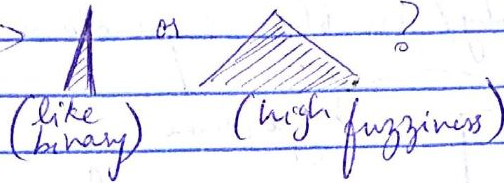 or ?
(like binary) (high fuzziness)